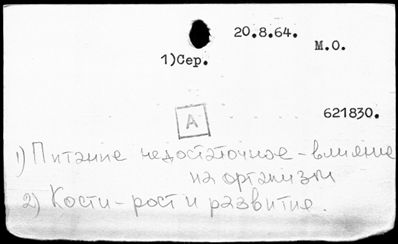 20.8.64.
М.О.
1)Сер.
А
621830.
1) Питание недостаточное - влияние
на организм
2) Кости - рост и развитие.